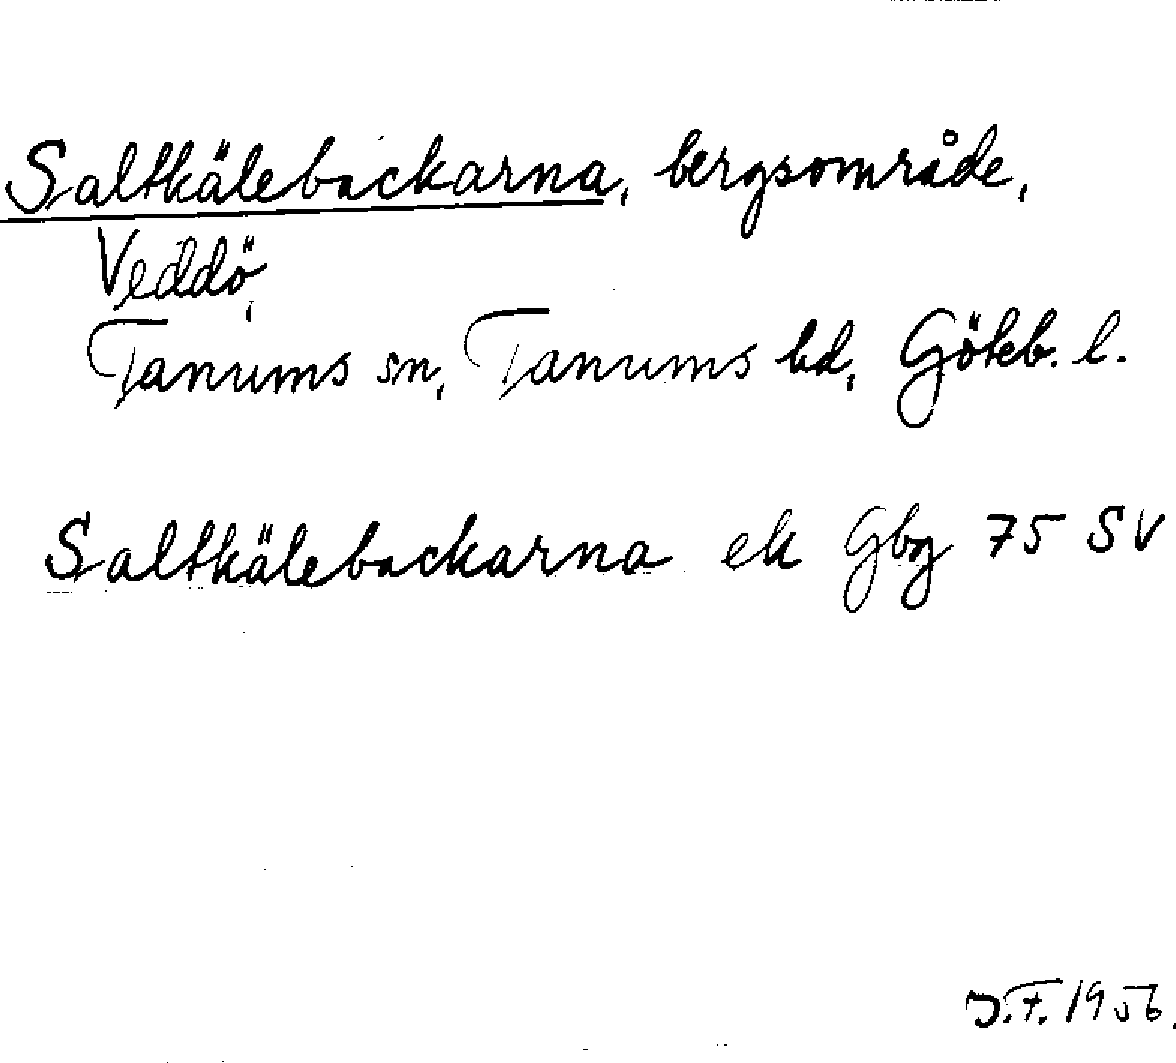 Saltkälebackarna, bergsområde,
Veddö,
Tanums sn, Tanums hd, Göteb. l.
Saltkälebackarna ek Gbg 75 SV
J.F. 1956.